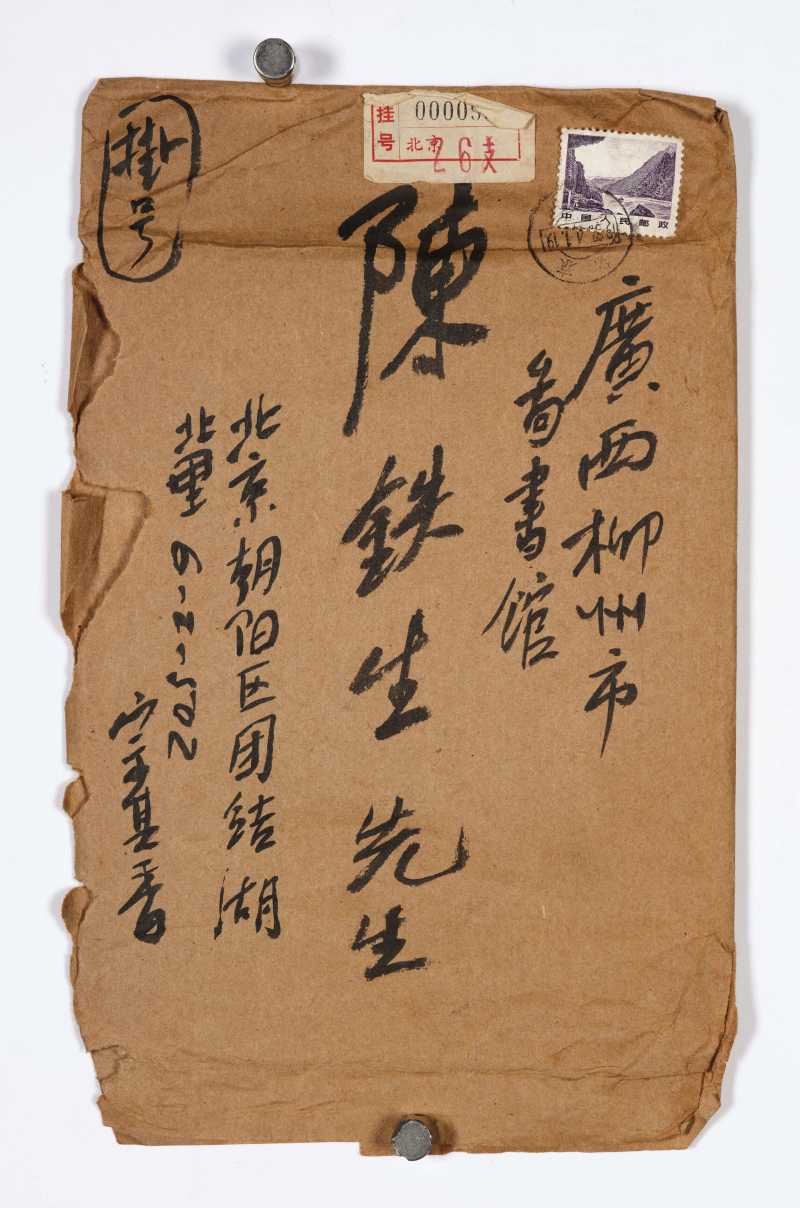 掛号
挂号
00005
北京
26支
中国人民邮政
廣西柳州市
啚書館
陳鉄生先生
北京朝阳区团结湖
北里9-2-502
宗其香